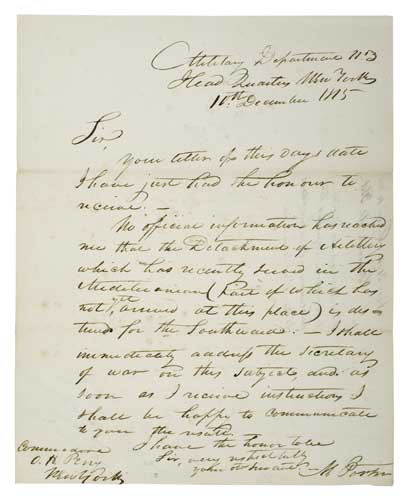 Military Department No 3
Head Quarters New York
16th December 1815
Sir,
Your letter of this days date
I have just had the honour to
receive. —
No official information has reached
me that the Detachment of Artillery
which has recently served in the
Mediteranean (Part of which has
not yet arrived at this place) is des
tined for the Southward: — I shall
immediately address the Secretary
of war on this subject, and as
soon as I receive instructions I
shall be happy to communicate
to you the result.
I have the honor to be
Sir, very respectfully
your obt servant
M Porter
Commodore
O. H. Perry
New York